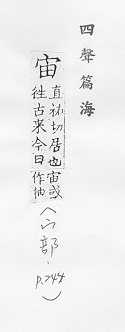 四聲篇海
宙
直祐切居也宙或
徃古来今曰作
(宀部, p.744)